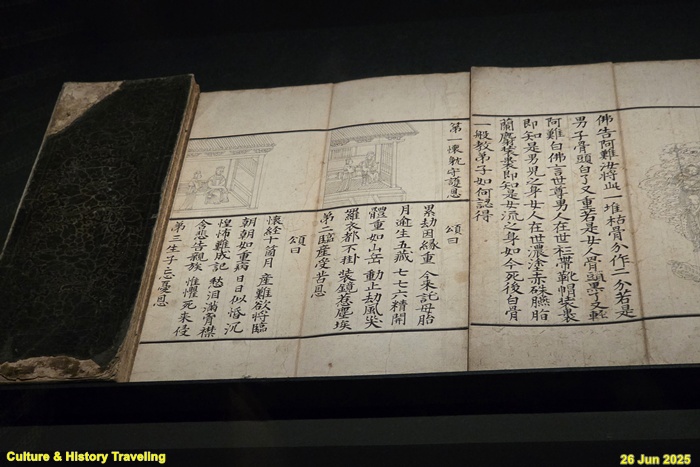 佛告阿難汝將此 堆枯骨分作二分若是
男子骨頭白了又重若是女人骨頭黑了又輕
阿難白佛言世尊男人在世衫帶靴帽裝裹
即知是男兒之身女人在世濃塗赤硃臙脂
蘭麝裝裹即知是女流之身如今死後白骨
一般教弟子如何認得
第一懷躭守護恩 頌曰
累劫因緣重 今來託母胎
月逾生五藏 七七六精開
體重如山岳 動止劫風災
羅衣都不掛 裝鏡惹塵埃
第二臨產受苦恩
頌曰
懷經十箇月 產難欲將臨
朝朝如重病 日日似惛沉
惶怖難成記 愁泪滿胷襟
含悲告親族 惟懼死來侵
第三生子忘憂恩
Culture & History Traveling
26 Jun 2025